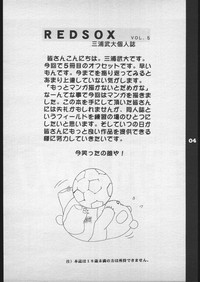 REDSOX VOL. 5
三浦武大個人誌
皆さんこんにちは。三浦武大です。
今回で5冊目のオフセットです。早い
もんです。今までを振り返ってみると
あまり進歩していない気がします。
「もっとマンガ描かないとだめだな」
なーんてな事で今回はマンガを描きま
した。この本を手にして頂いた皆さん
には失礼かもしれませんが、同人誌と
いうフィールドを練習の場のひとつに
したいと思います。そしていつの日か
皆さんにもっと良い作品を提供できる
様に努力していきたいです。
今笑ったの誰や！
04